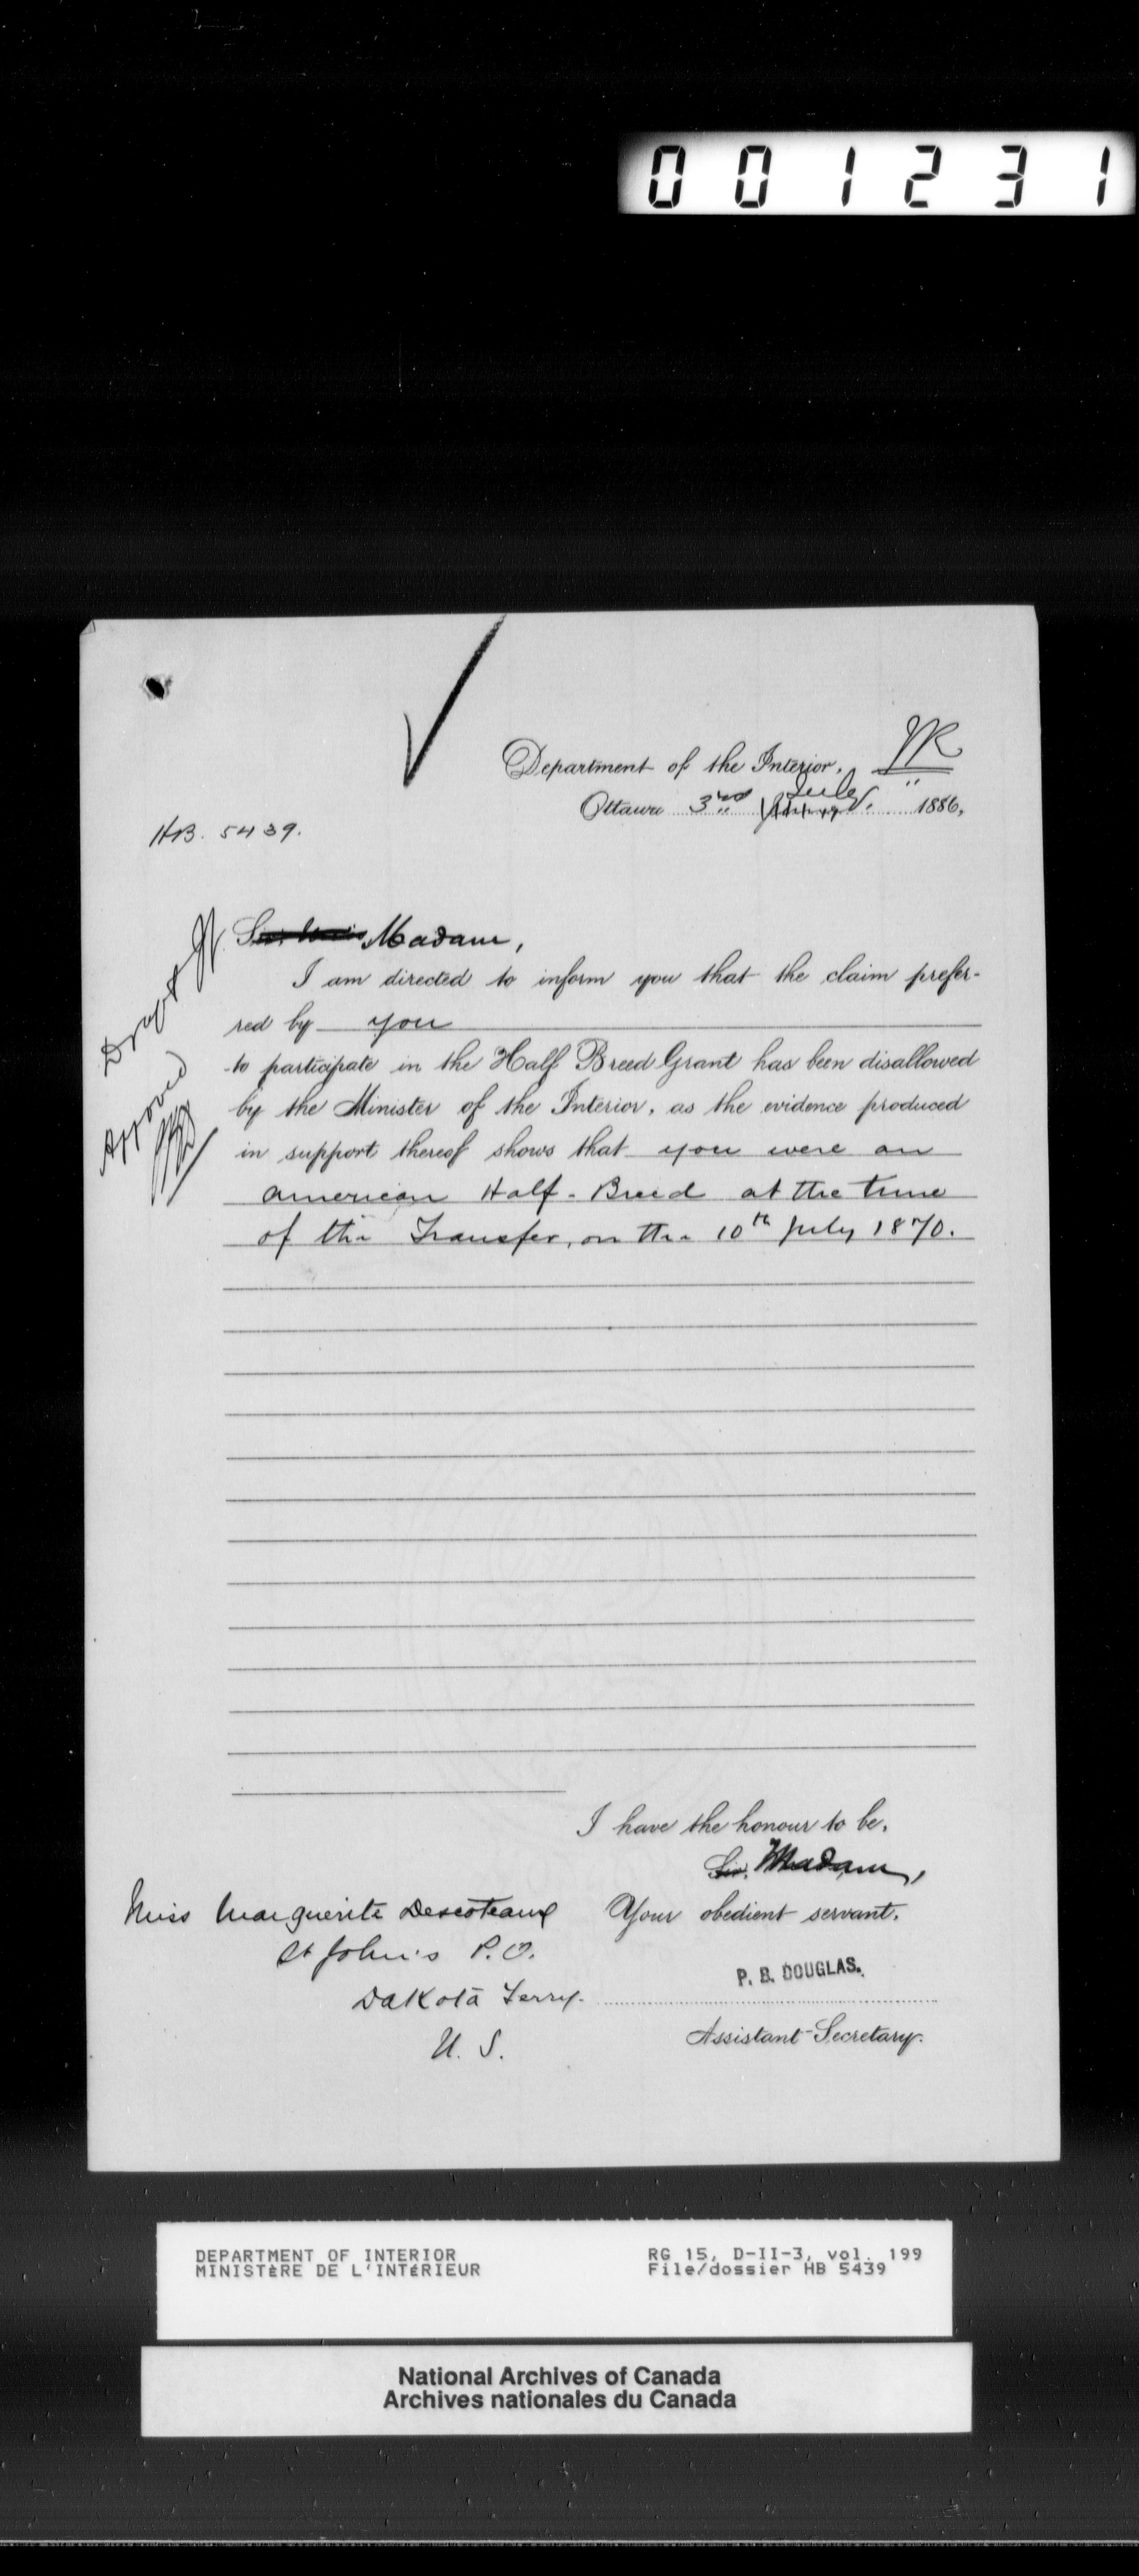 001231
Department of the Interior,
Ottawa 3rd July 1886.
HB. 5439.
Madam,
I am directed to inform you that the claim prefer-
red by you
to participate in the Half Breed Grant has been disallowed
by the Minister of the Interior, as the evidence produced
in support thereof shows that you were an
American Half-Breed at the time
of the Transfer, on the 10th July 1870.
Draft
Approved
I have the honour to be,
Sir, Madam,
Your obedient servant,
P. B. DOUGLAS.
Assistant-Secretary.
Miss Marguerite Descoteaux
St John's P.O.
Dakota Terry.
U. S.
DEPARTMENT OF INTERIOR
MINISTÈRE DE L'INTÉRIEUR
RG 15, D-II-3, vol. 199
File/dossier HB 5439
National Archives of Canada
Archives nationales du Canada